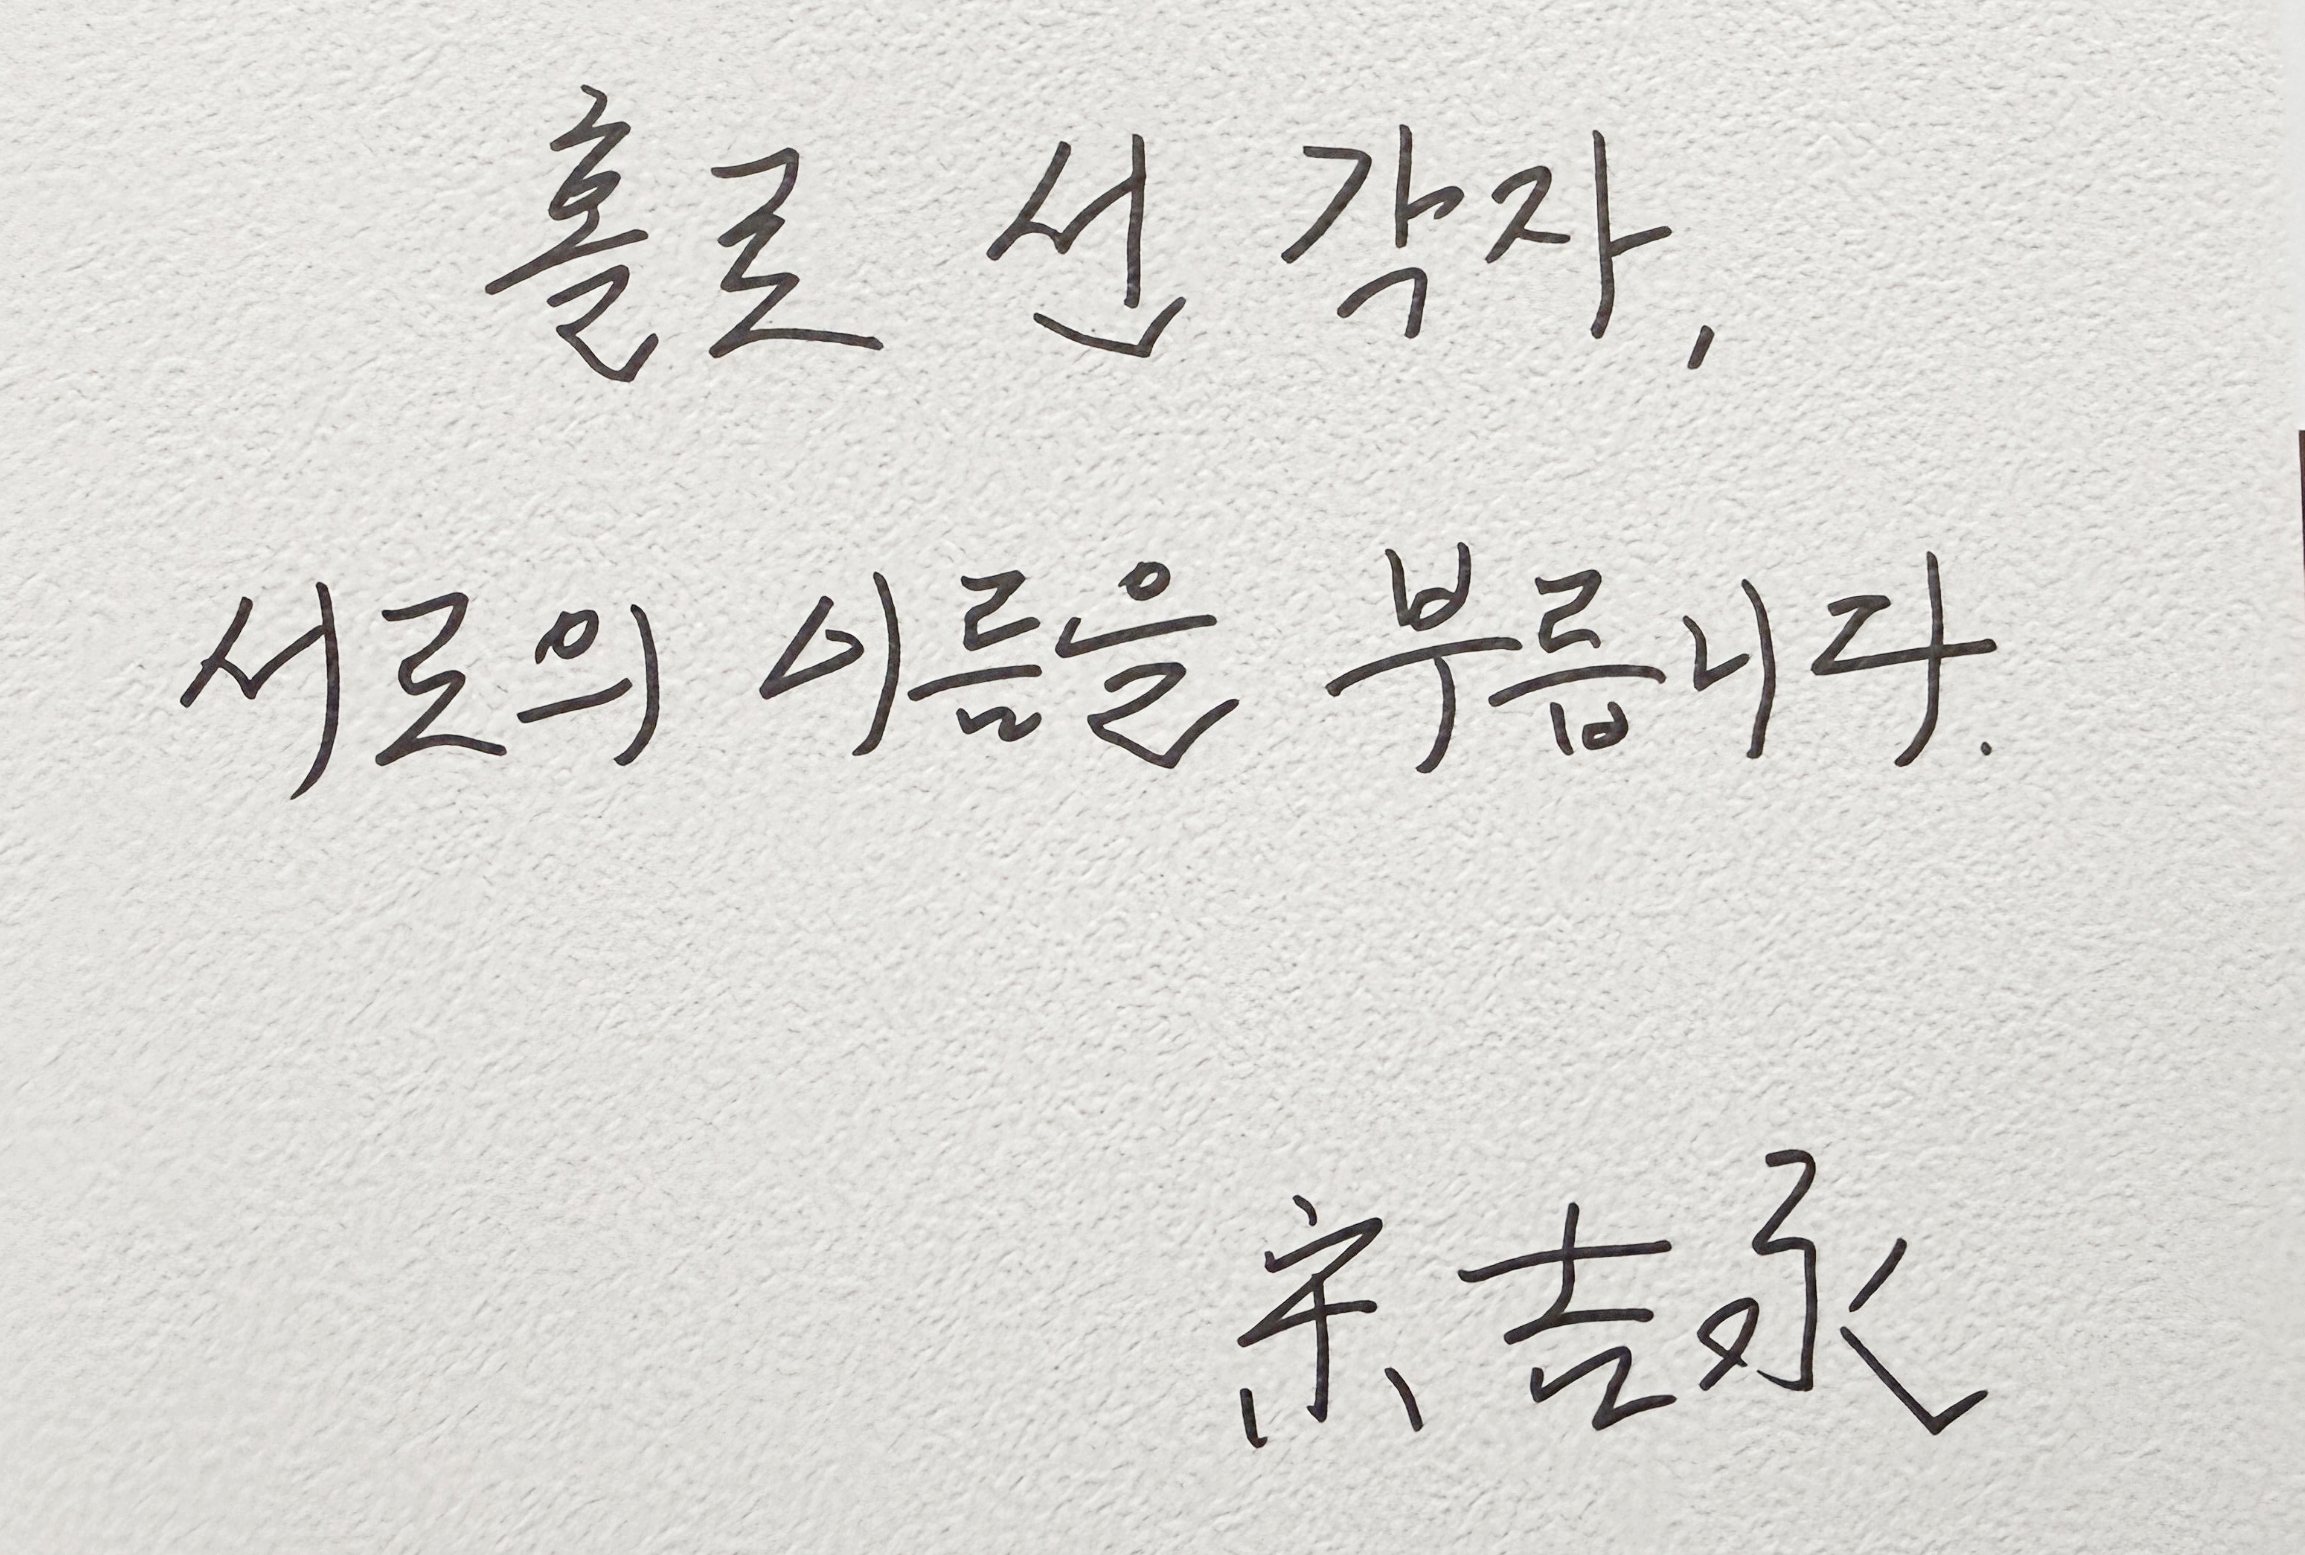 홀로 선 각자,
서로의 이름을 부릅니다.
宋吉永